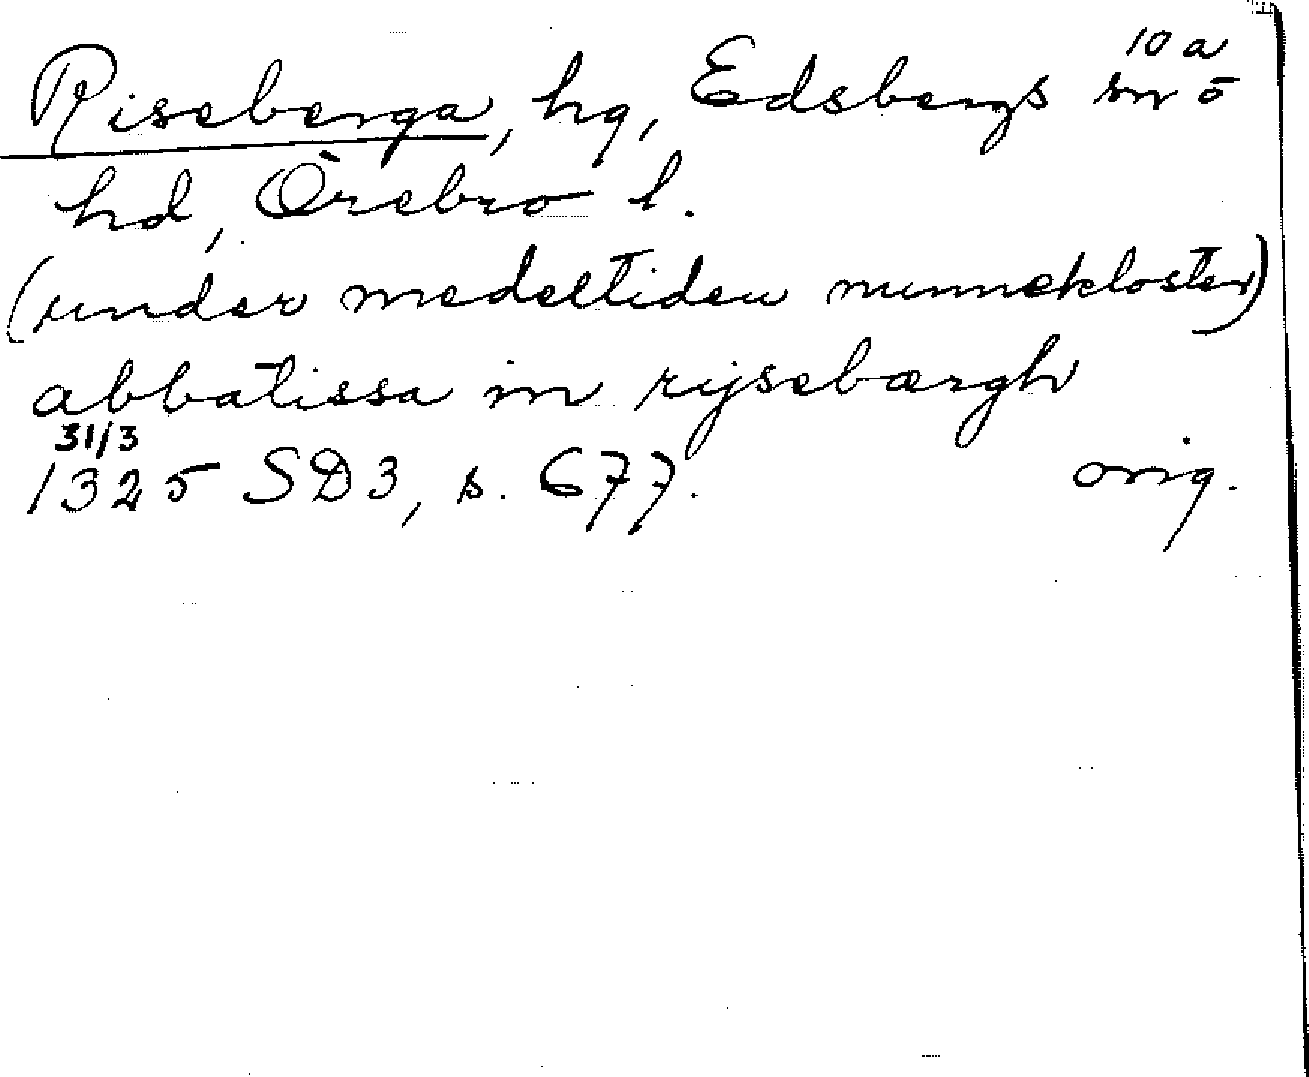 10 a
Riseberga, hg, Edsbergs sn o
hd, Örebro l.
(under medeltiden nunnekloster)
abbatissa in rysebærgh
31/3
1325 SD3, s. 677. orig.